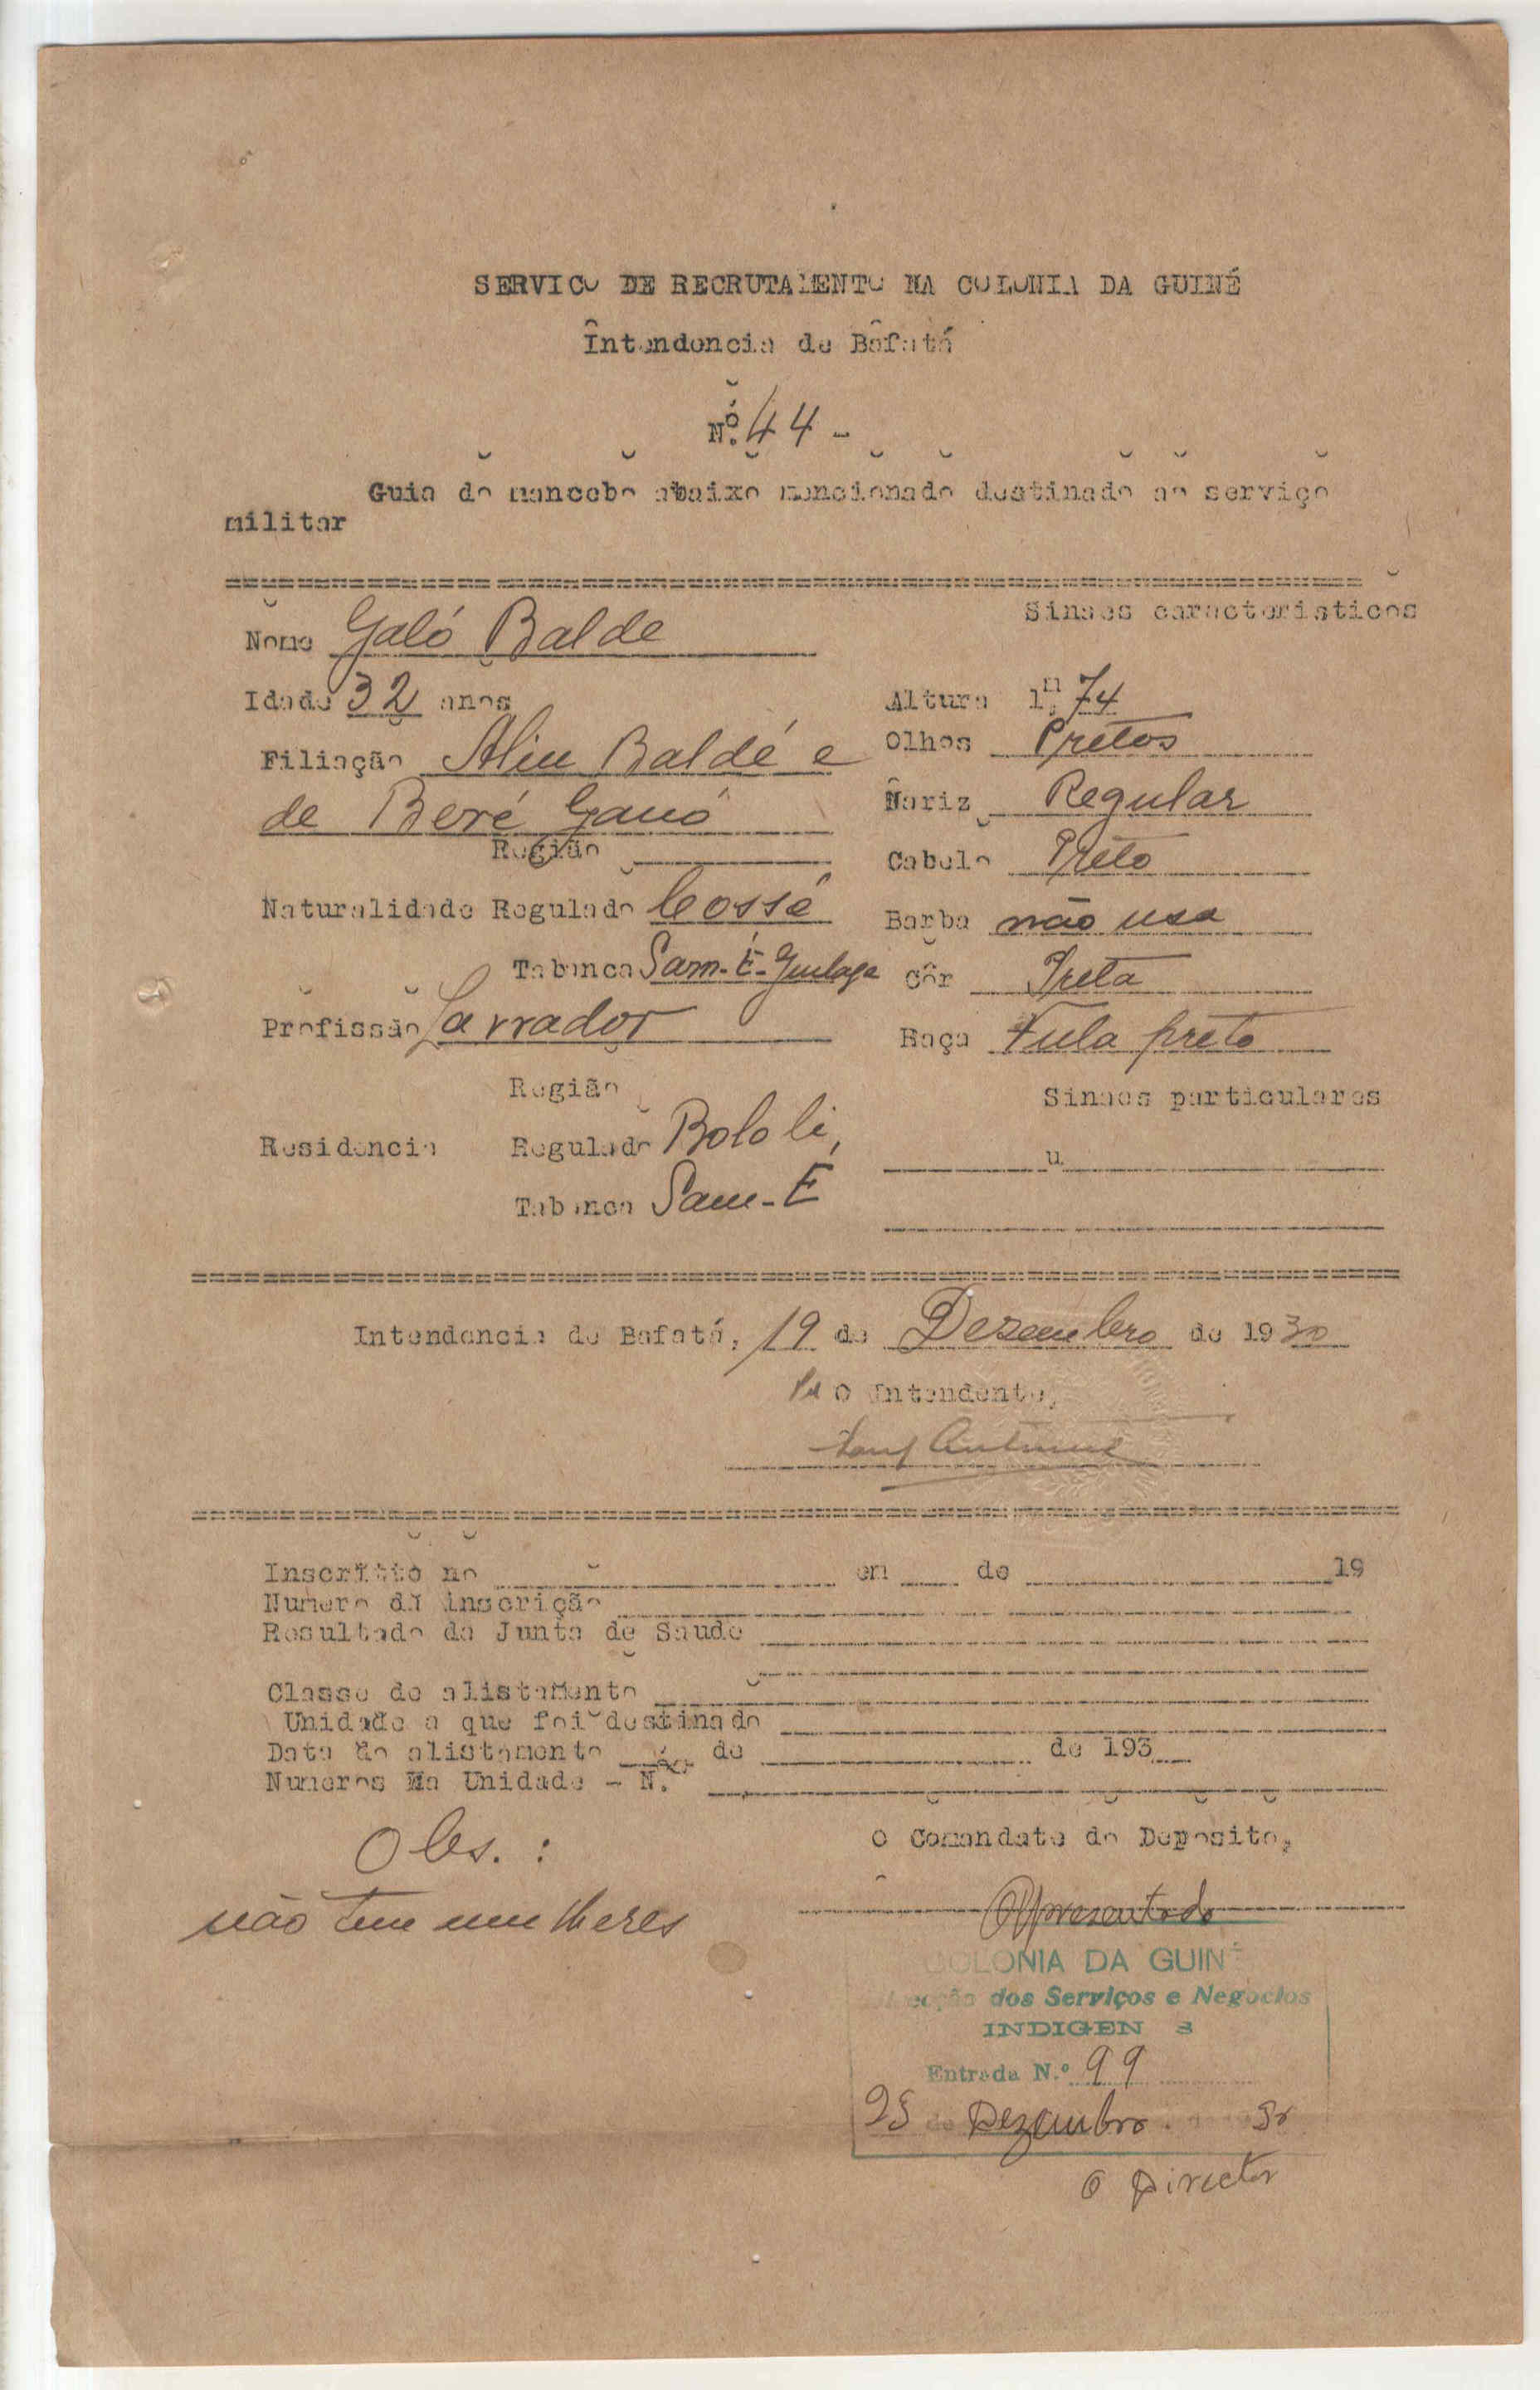 SERVICO DE RECRUTAMENTO NA COLONIA DA GUINÉ
Intendencia de Bafatá
Nº. 44 -
Guia do mancebo abaixo mencionado destinado ao serviço
militar
Sinaes caracteristicos
Nome Galó Balde
Idade 32 anos
Altura 1m,74
Filiação Aliu Baldé e
Olhos Pretos
de Beré Ganó
Nariz Regular
Região
Cabelo Preto
Naturalidade Regulado Cossé
Barba não usa
Tabanca Sam-É-
Côr Preta
Profissão Lavrador
Raça Fula preto
Região
Sinaes particulares
Residencia Regulado Bololi,
Tabanca Sam-É
Intendencia de Bafatá, 19 de Dezembro de 1930
O Intendente,
Inscrito no em de 19
Numero da inscrição
Resultado da Junta de Saude
Classe do alistamento
Unidade a que foi destinado
Data do alistamento de de 193
Numeros na Unidade - N.º
Obs. :
O Comandate do Deposito,
não tem mulheres
Apresentado
COLONIA DA GUINÉ
dos Serviços e Negocios
INDIGEN S
Entrada N.º 99
25 de Dezembro 30
O Director